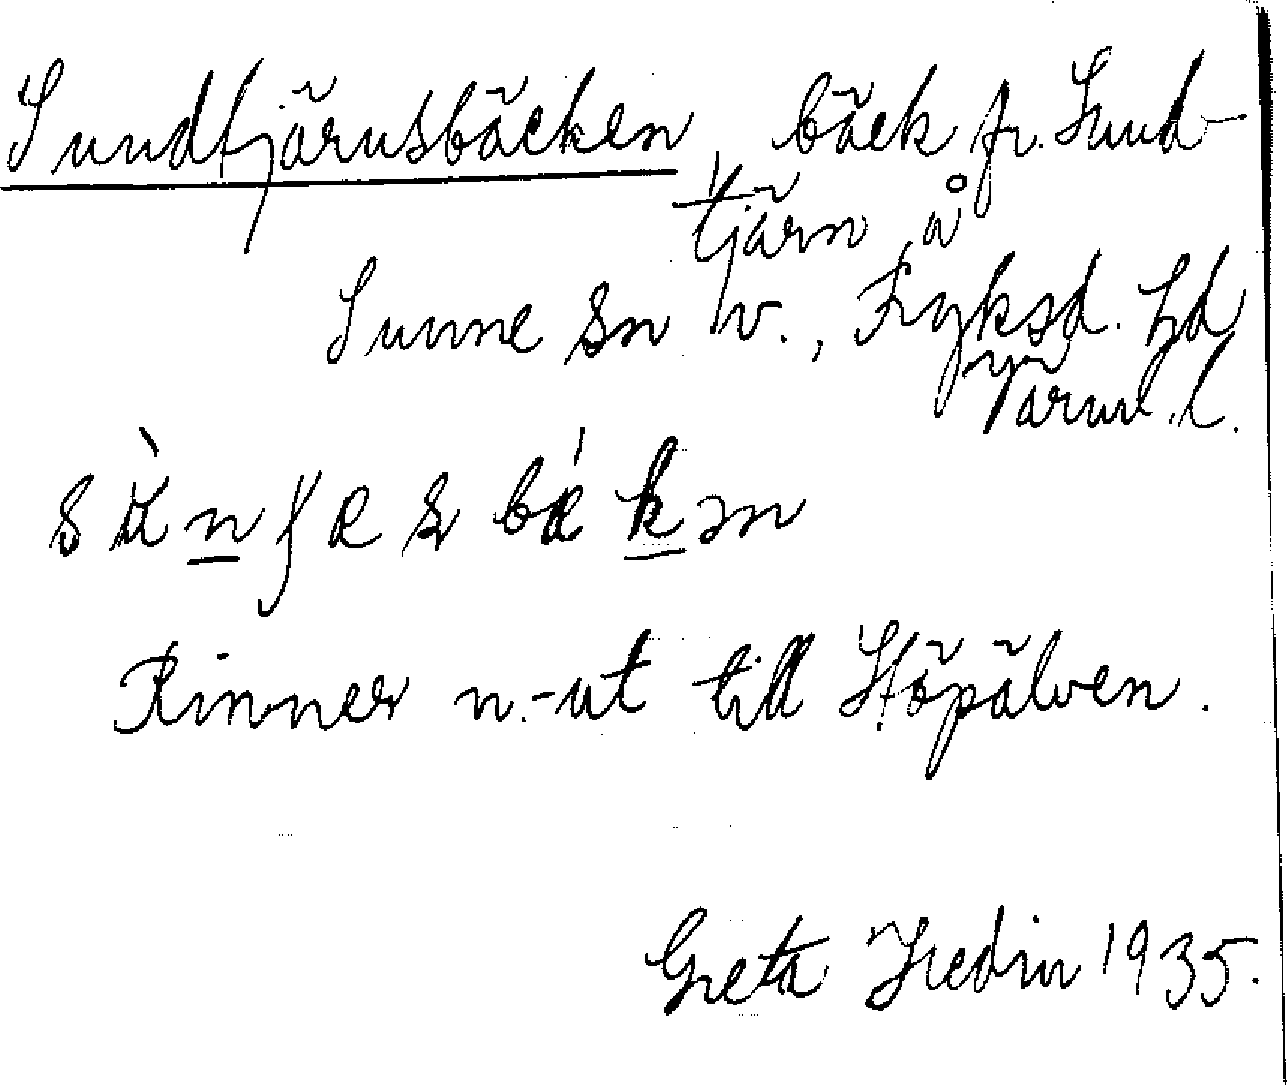 Sundtjärnsbäcken, bäck fr. Sund-
tjärn å
Sunne sn v., Fryksd. hd
Värml. l.
Rinner n.-ut till Stöpälven.
Greta Hedin 1935.